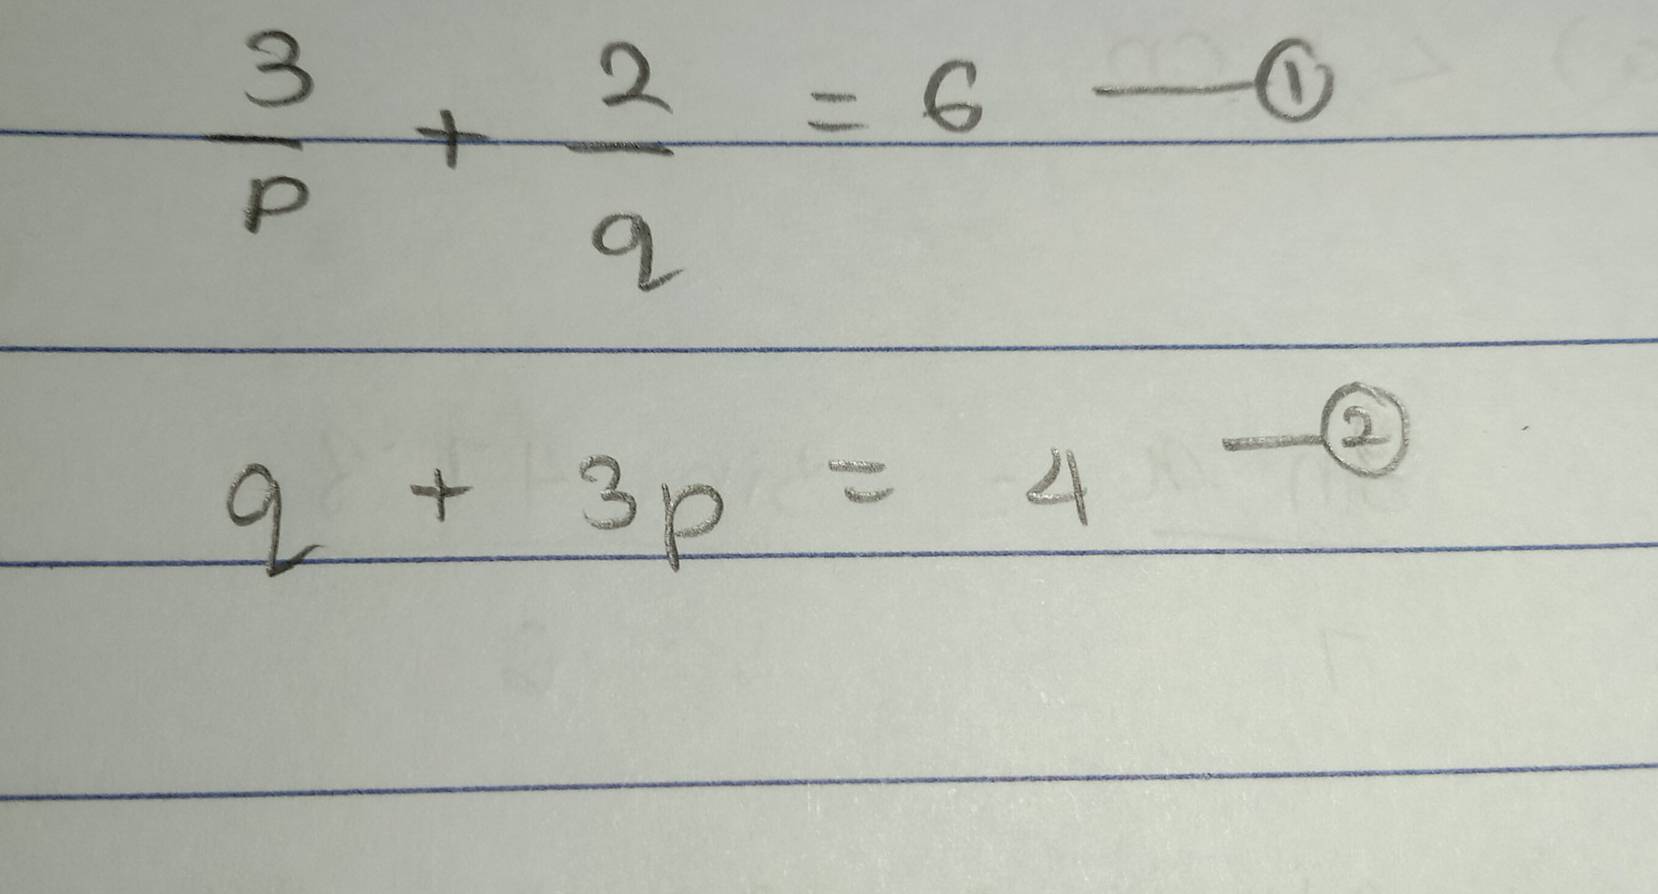 3/p + 2/q = 6 — ①
q + 3p = 4 — ②